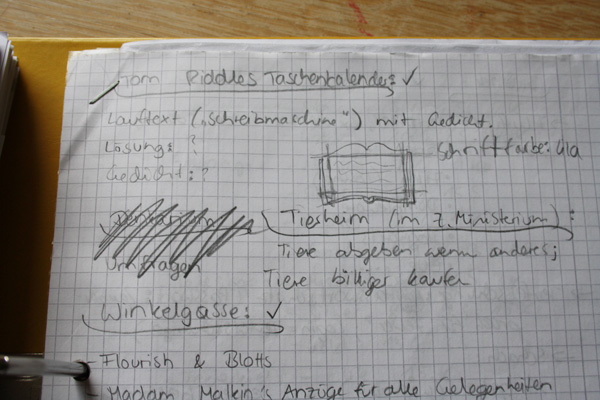 Tom Riddles Taschenkalender: ✓
Lauftext („Schreibmaschine“) mit Gedicht.
Lösung: ?
Schriftfarbe: lila
Gedicht: ?
Tierheim (im Z. Ministerium):
Tiere abgeben wenn anderes;
Umfragen
Tiere billiger kaufen
Winkelgasse: ✓
- Flourish & Blotts
- Madam Malkin's Anzüge für alle Gelegenheiten